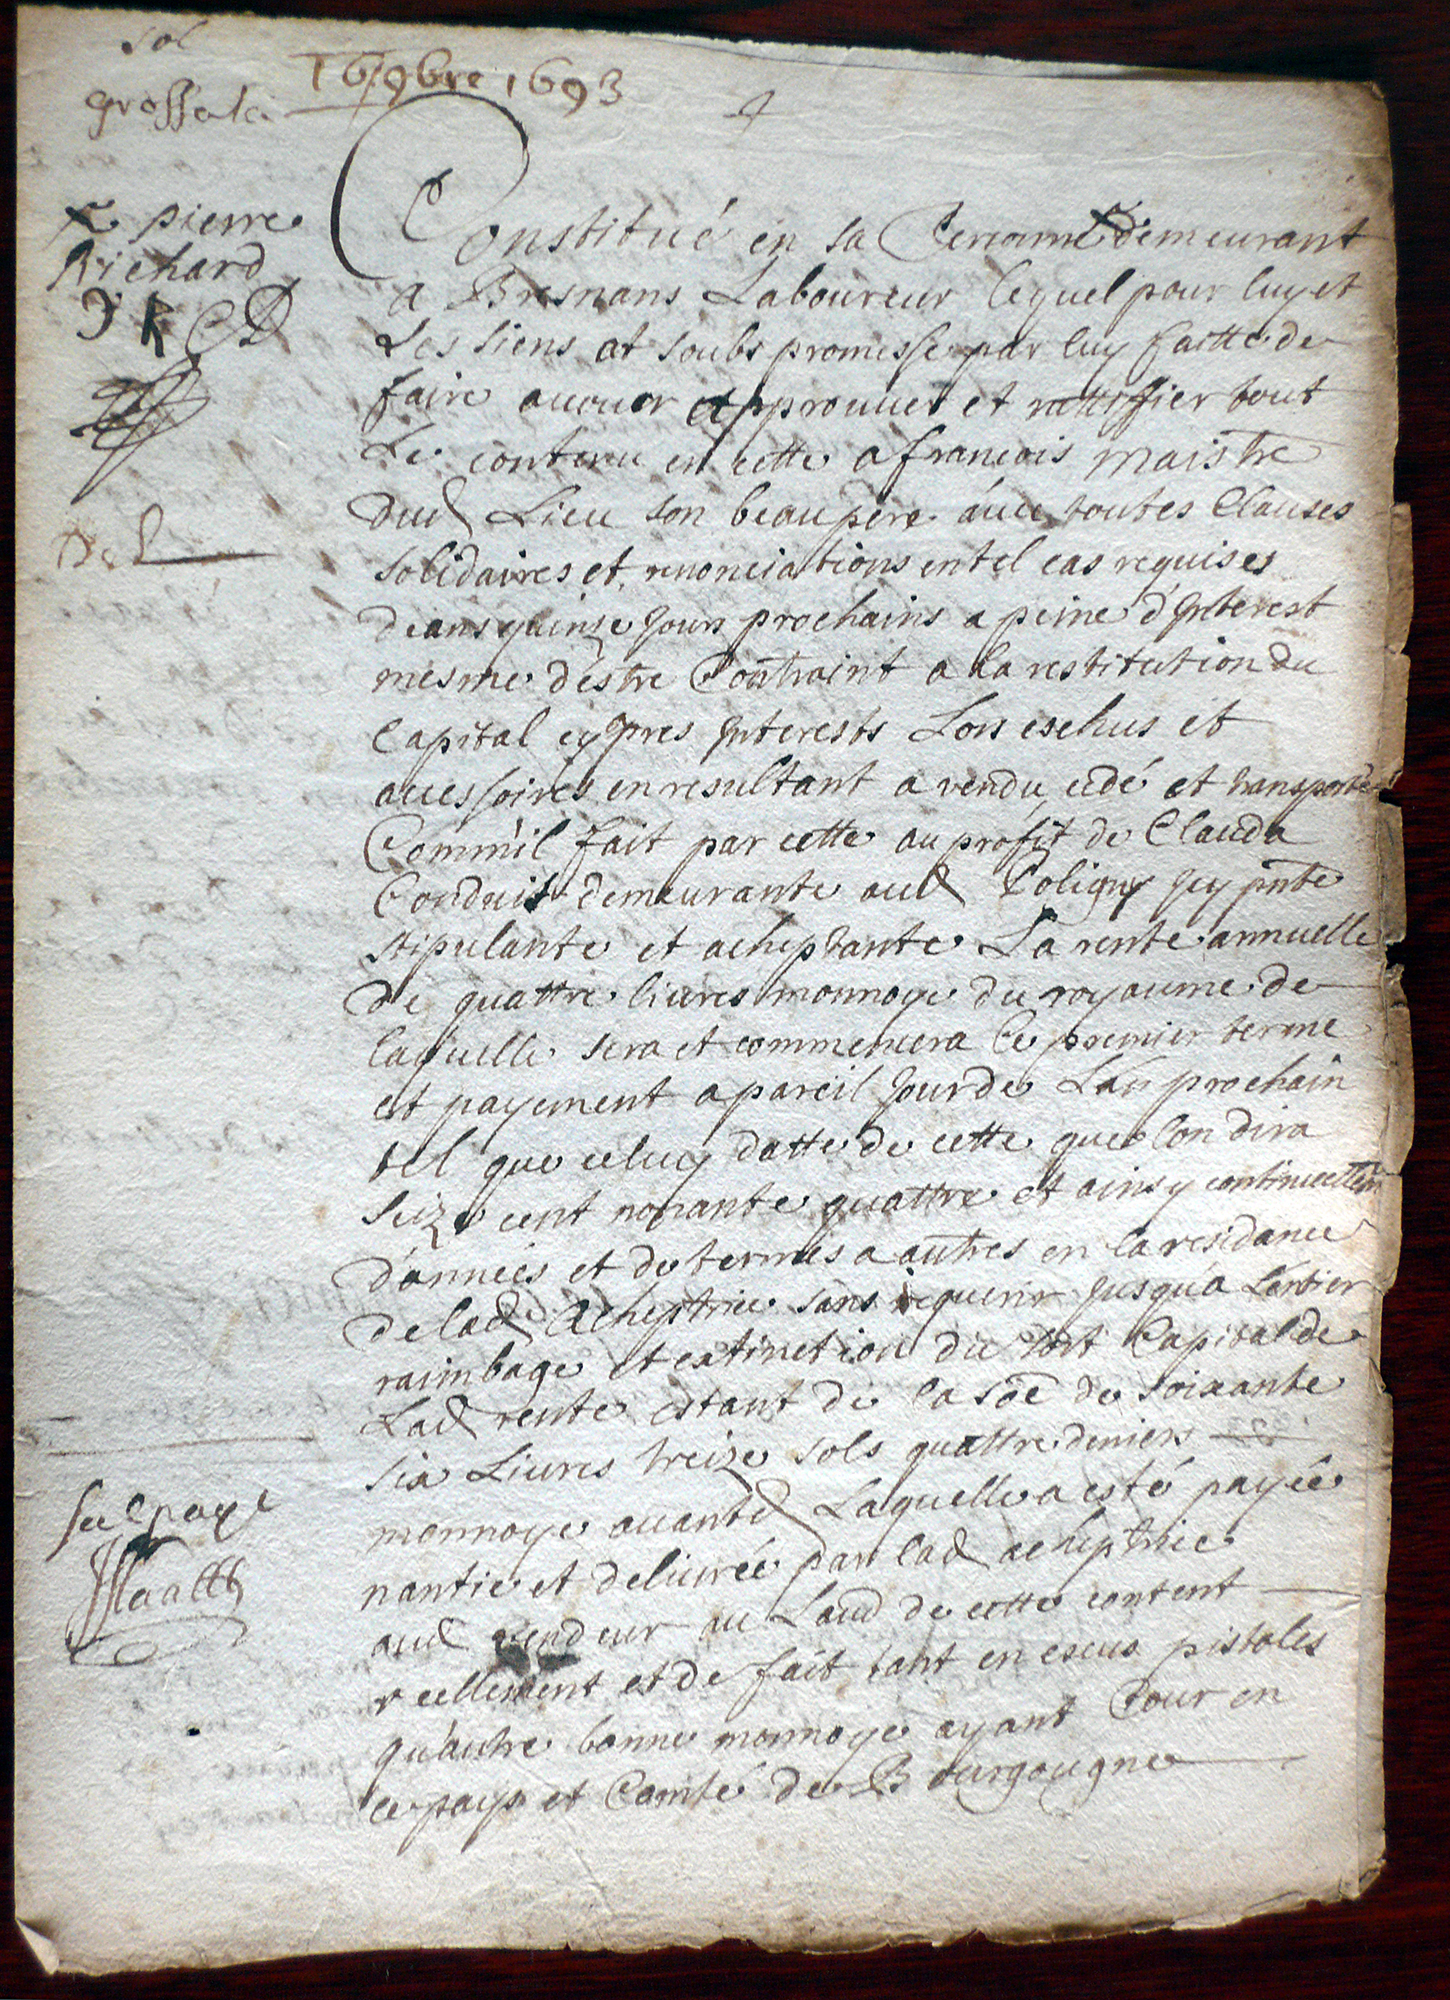 sol
grossale
1693
pierre
Richard
Constitué en sa Personne demeurant
a Bresnans Laboureur lequel pour luy et
Les siens et soubs promesse par luy faitte de
faire auouer approuuer et rattiffier tout
Le contenu en cette a francois maistre
dud Lieu son beaupere auec toutes Clauses
solidaires et renonciations en tel cas requises
deans quinze Jours prochains a peine d'Interest
mesme d'estre Contraint a la restitution du
Capital cy apres Interests Lors eschus et
accessoires en resultant a vendu cedé et transporté
Comm'il fait par cette au profit de Clauda
Conduit demeurante aud Poligny Jcy pnte
stipulante et acheptante La rente annuelle
de quattre liures monnoye du royaume de
laquelle sera et commencera le premier terme
et payement a pareil Jour de Lan prochain
tel que celuy datte de cette que lon dira
seize cent nonante quattre et ainsy
d'années et de termes a autres en la residance
de lad Acheptrice sans requerir Jusqu'a L'entier
raimbage et extinction du sort Capital de
Lad rente estant de la soe de soixante
six Liures treize sols quattre deniers
monnoye auantd Laquelle a esté payée
nantie et deliurée par lad acheptrice
aud vendeur au Laud de cette content
reellement et de fait tant en escus pistoles
qu'autre bonne monnoye ayant Cour en
ce pays et Comté de Bourgougne